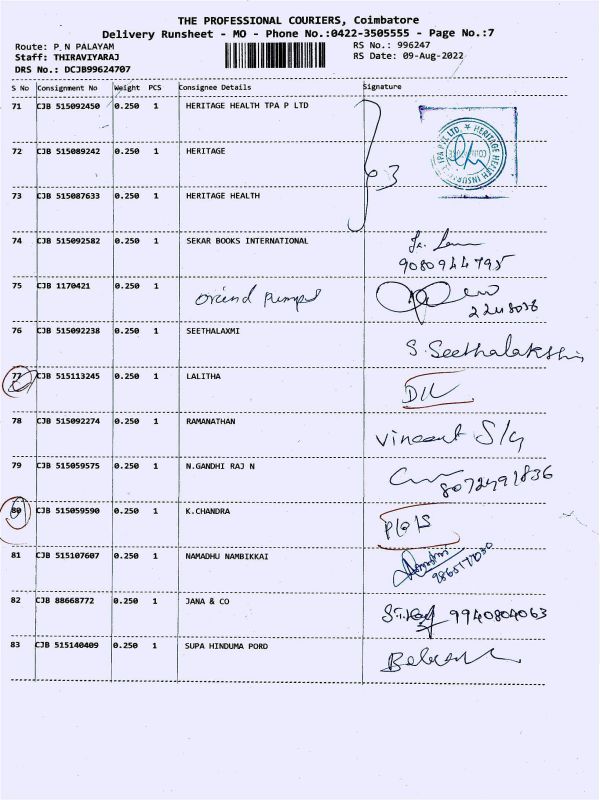 THE PROFESSIONAL COURIERS, Coimbatore
Delivery Runsheet - MO - Phone No.:0422-3505555 - Page No.:7
Route: P N PALAYAM RS No.: 996247
Staff: THIRAVIYARAJ RS Date: 09-Aug-2022
DRS No.: DCJB99624707
S No Consignment No Weight PCS Consignee Details Signature
71 CJB 515092450 0.250 1 HERITAGE HEALTH TPA P LTD
72 CJB 515089242 0.250 1 HERITAGE
3
73 CJB 515087633 0.250 1 HERITAGE HEALTH
74 CJB 515092582 0.250 1 SEKAR BOOKS INTERNATIONAL
9080944795
75 CJB 1170421 0.250 1
2248038
76 CJB 515092238 0.250 1 SEETHALAXMI S. Seethalakshmi
77 CJB 515113245 0.250 1 LALITHA D/L
78 CJB 515092274 0.250 1 RAMANATHAN Vincent S/g
79 CJB 515059575 0.250 1 N.GANDHI RAJ N
8072491836
80 CJB 515059590 0.250 1 K.CHANDRA
81 CJB 515107607 0.250 1 NAMADHU NAMBIKKAI
82 CJB 88668772 0.250 1 JANA & CO 9940804063
83 CJB 515140409 0.250 1 SUPA HINDUMA PORD